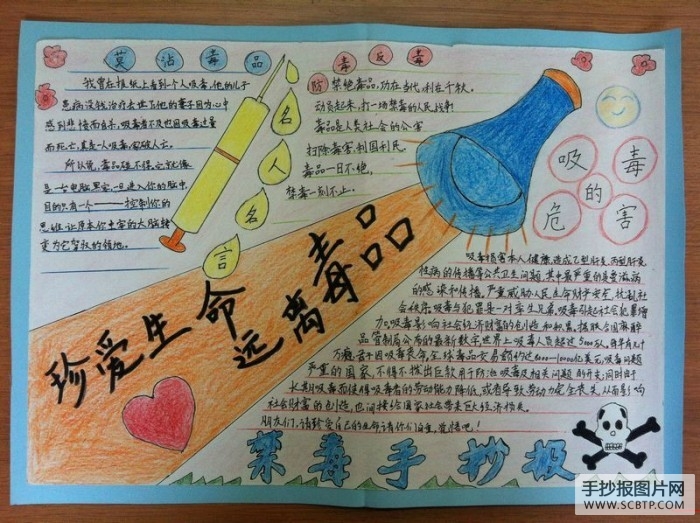 莫沾毒品
我曾在报纸上看到一个人吸毒,他的儿子
患病没钱治疗去世与他的妻子因为心中
感到悲惨而自杀,吸毒者不久也因吸毒过量
而死亡,真是一人吸毒,家破人亡。
所以说,毒品碰不得,它就像
是一台电脑黑客,一旦进入你的脑中,
目的只有一个——控制你的
思维,让原本你主宰的大脑转
变为它掌权的领地。
名人名言
防毒反毒
禁绝毒品,功在当代,利在千秋。
动员起来,打一场禁毒的人民战争
毒品是人类社会的公害
扫除毒害,利国利民。
毒品一日不绝,
禁毒一刻不止。
吸毒的危害
吸毒损害本人健康,造成乙型肝炎,丙型肝炎
性病的传播等公共卫生问题,其中最严重的是爱滋病
的感染和传播。严重威胁人民生命财产安全,扰乱社
会秩序。吸毒与犯罪是一对孪生兄弟,吸毒引起社会犯罪增
加。吸毒影响社会经济财富的创造和积累。据联合国麻醉
品管制局公布的最新数字,世界上吸毒人员超过5000万人,每年有几十
万瘾君子因吸毒丧命,全球毒品交易额约达8000-10000亿美元,吸毒问题
严重的国家,不得不拨出巨款用于防治吸毒及相关问题的开支;同时由于
长期吸毒而使得吸毒者的劳动能力降低,或者导致劳动力完全丧失,从而影响
社会财富的创造,也间接给国家社会带来巨大经济损失。
朋友们,请珍爱自己的生命
珍爱生命
远离毒品
禁毒手抄报
手抄报图片网
WWW.SCBTP.COM